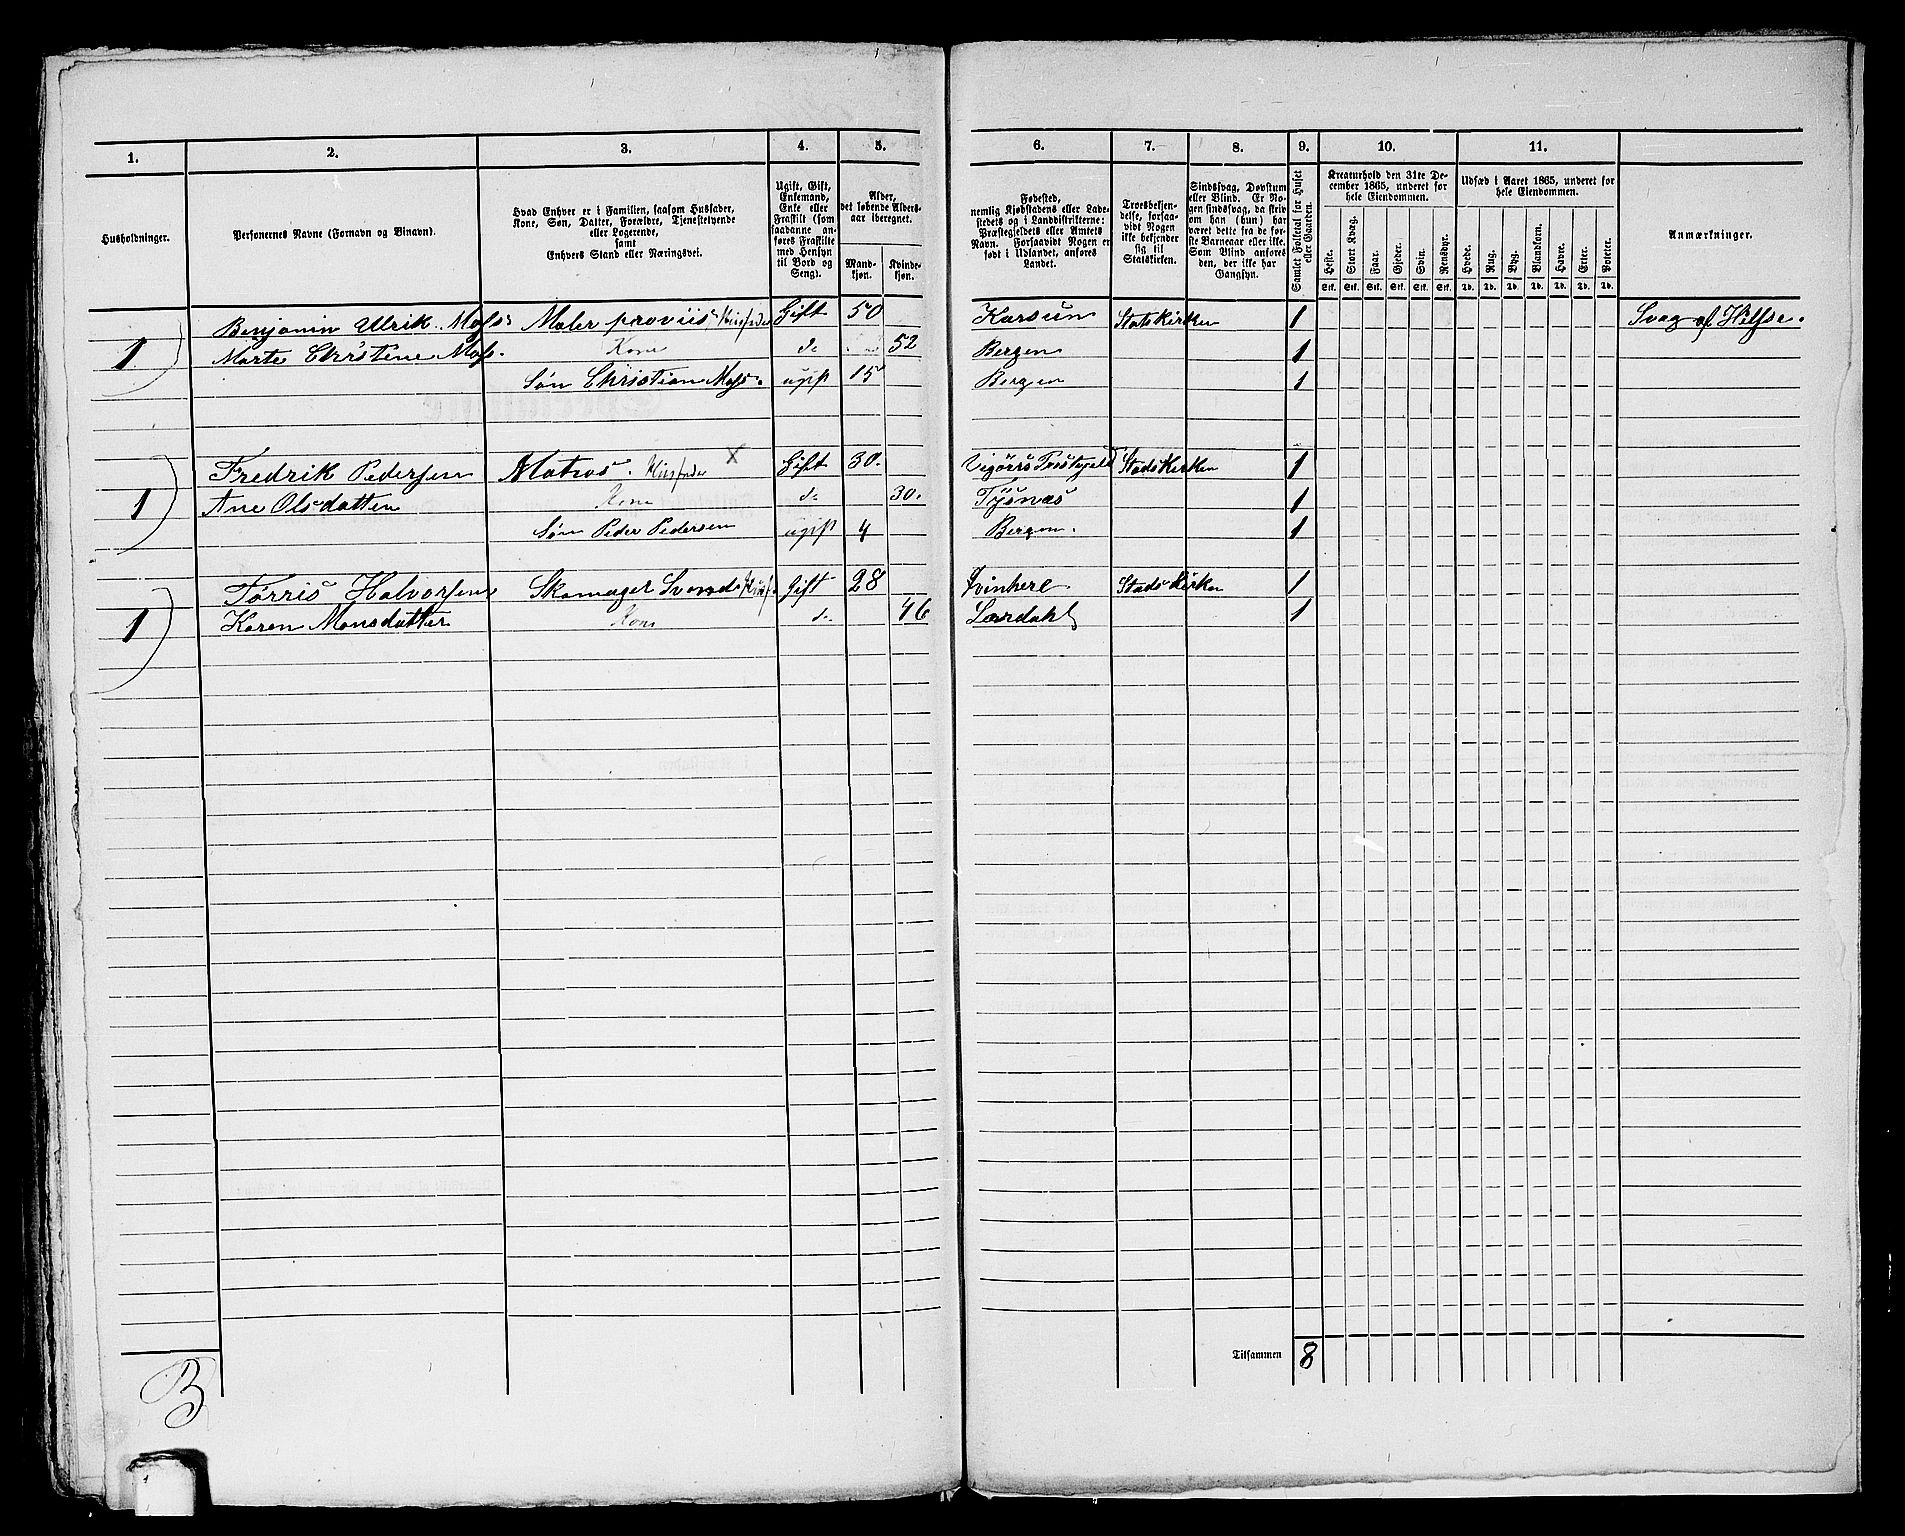 1. 2. 3. 4. 5. 6. 7. 8. 9. 10. 11.
Husholdninger.
Personernes Navne (Fornavn og Binavn).
Hvad Enhver er i Familien, saasom Husfader,
Kone, Søn, Datter, Forældre, Tjenestetyende
eller Logerende,
samt
Enhvers Stand eller Næringsvei.
Ugift, Gift,
Enkemand,
Enke eller
Fraskilt (som
saadanne an-
føres Fraskilte
med Hensyn
til Bord og
Seng).
Alder,
det løbende Alders-
aar iberegnet.
Mand-
kjøn.
Kvinde-
kjøn.
Fødested,
nemlig Kjøbstadens eller Lade-
stedets og i Landdistrikterne:
Præstegjeldets eller Amtets
Navn. Forsaavidt Nogen er
født i Udlandet, anføres
Landet.
Troesbekjen-
delse, forsaa-
vidt Nogen
ikke bekjender
sig til
Statskirken.
Sindssvag, Døvstum
eller Blind. Er No-
gen sindssvag, da skriv
om han (hun) har
været dette fra de før-
ste Barneaar eller ikke.
Som Blind anføres
den, der ikke har
Gangsyn.
Samlet Folketal for Huset
eller Gaarden.
Kreaturhold den 31te De-
cember 1865, underet for
hele Eiendommen.
Heste. Stort Kvæg. Faar. Gjeder. Svin. Rensdyr.
Stk. Stk. Stk. Stk. Stk. Stk.
Udsæd i Aaret 1865, underet for
hele Eiendommen.
Hvede. Rug. Byg. Blandkorn. Havre. Erter. Poteter.
Td. Td. Td. Td. Td. Td. Td.
Anmærkninger.
Benjamin Ulrik Moss Maler Husfader Gift 50 Karsun Statskirken 1 Svag af Helse.
1 Marte Christene Moss. Kone do 52 Bergen 1
Søn Christian Moss. ugift 15 Bergen 1
Fredrik Pedersen Matros. Husfader X Gift 30. Stadskirken 1
1 Ane Olsdatten Kone do 30. Tysnæs 1
Søn Peder Pedersen ugift 4 Bergen. 1
Torris Halvorsen Skomager Svend Husf. Gift 28 Qvinhere Stadskirken 1
1 Karen Monsdatter Kone do 46 Laurdahl 1
Tilsammen 8
B